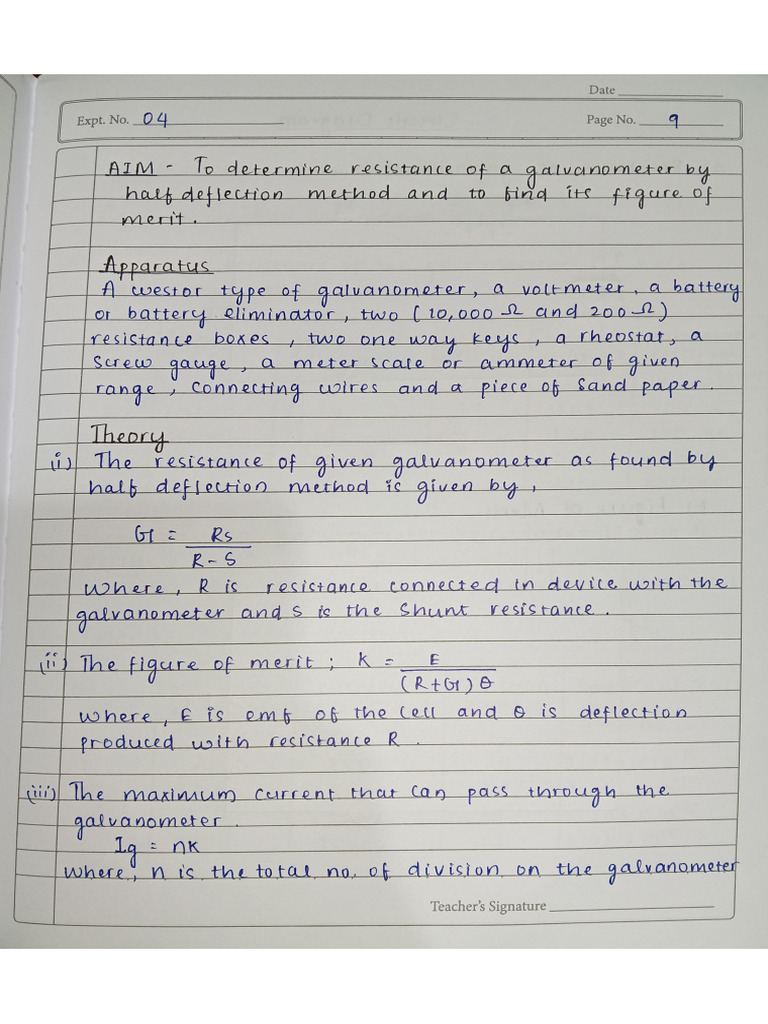 Date
Expt. No. 04
Page No. 9
AIM - To determine resistance of a galvanometer by
half deflection method and to find its figure of
merit.
Apparatus
A westor type of galvanometer, a voltmeter, a battery
or battery eliminator, two (10,000 Ω and 200 Ω)
resistance boxes, two one way keys, a rheostat, a
screw gauge, a meter scale or ammeter of given
range, connecting wires and a piece of sand paper.
Theory
(i) The resistance of given galvanometer as found by
half deflection method is given by,
G = Rs
R - S
where, R is resistance connected in device with the
galvanometer and s is the shunt resistance.
(ii) The figure of merit; K = E
(R+G) θ
where, E is emf of the cell and θ is deflection
produced with resistance R.
(iii) The maximum current that can pass through the
galvanometer.
Ig = nk
where, n is the total no. of division on the galvanometer
Teacher's Signature